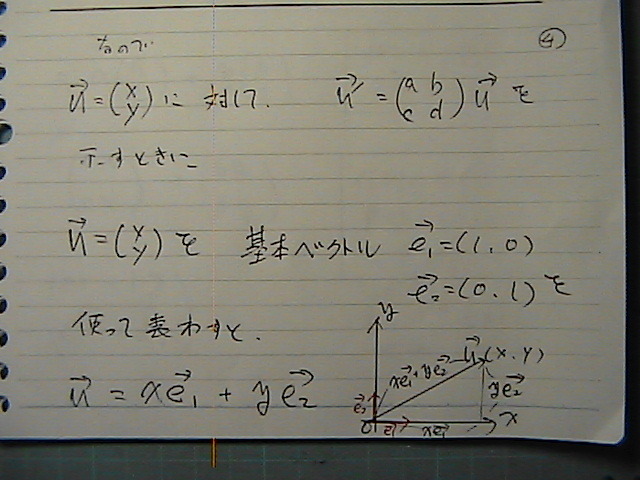 ④
なので
u⃗ = (x y) に対して、 u⃗' = (a b c d) u⃗ を
示すときに
u⃗ = (x y) を 基本ベクトル e₁⃗ = (1, 0)
e₂⃗ = (0, 1) を
使って表わすと、
u⃗ = xe₁⃗ + ye₂⃗
y
u⃗ (x, y)
xe₁⃗ + ye₂⃗
ye₂⃗
e₂⃗
O e₁⃗ xe₁⃗ x